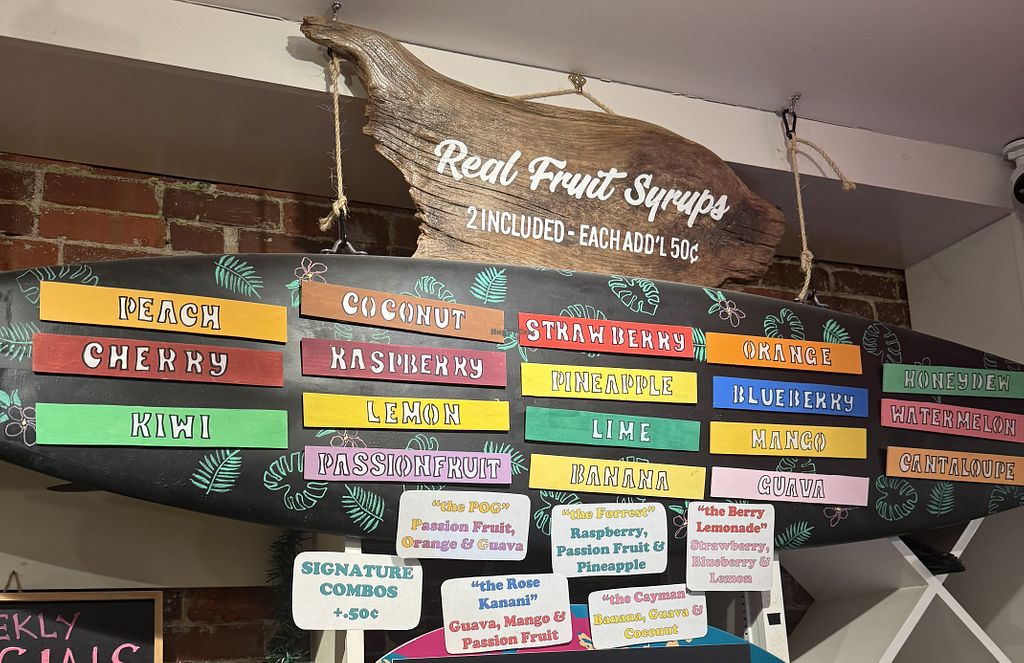 Real Fruit Syrups
2 INCLUDED - EACH ADD'L 50¢
PEACH
CHERRY
KIWI
COCONUT
RASPBERRY
LEMON
PASSIONFRUIT
STRAWBERRY
PINEAPPLE
LIME
BANANA
ORANGE
BLUEBERRY
MANGO
GUAVA
HONEYDEW
WATERMELON
CANTALOUPE
"the POG"
Passion Fruit,
Orange & Guava
"the Forrest"
Raspberry,
Passion Fruit &
Pineapple
"the Berry
Lemonade"
Strawberry,
Blueberry &
Lemon
SIGNATURE
COMBOS
+.50¢
"the Rose
Kanani"
Guava, Mango &
Passion Fruit
"the Cayman"
Banana, Guava &
Coconut